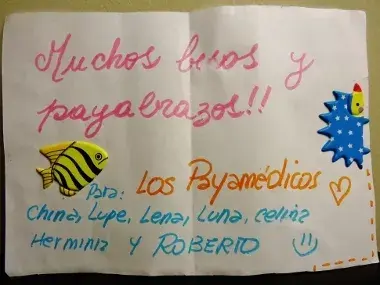 Muchos besos y
payabrazos!!
Para: Los Payamédicos
China, Lupe, Lena, Luna, celina
Herminia Y ROBERTO